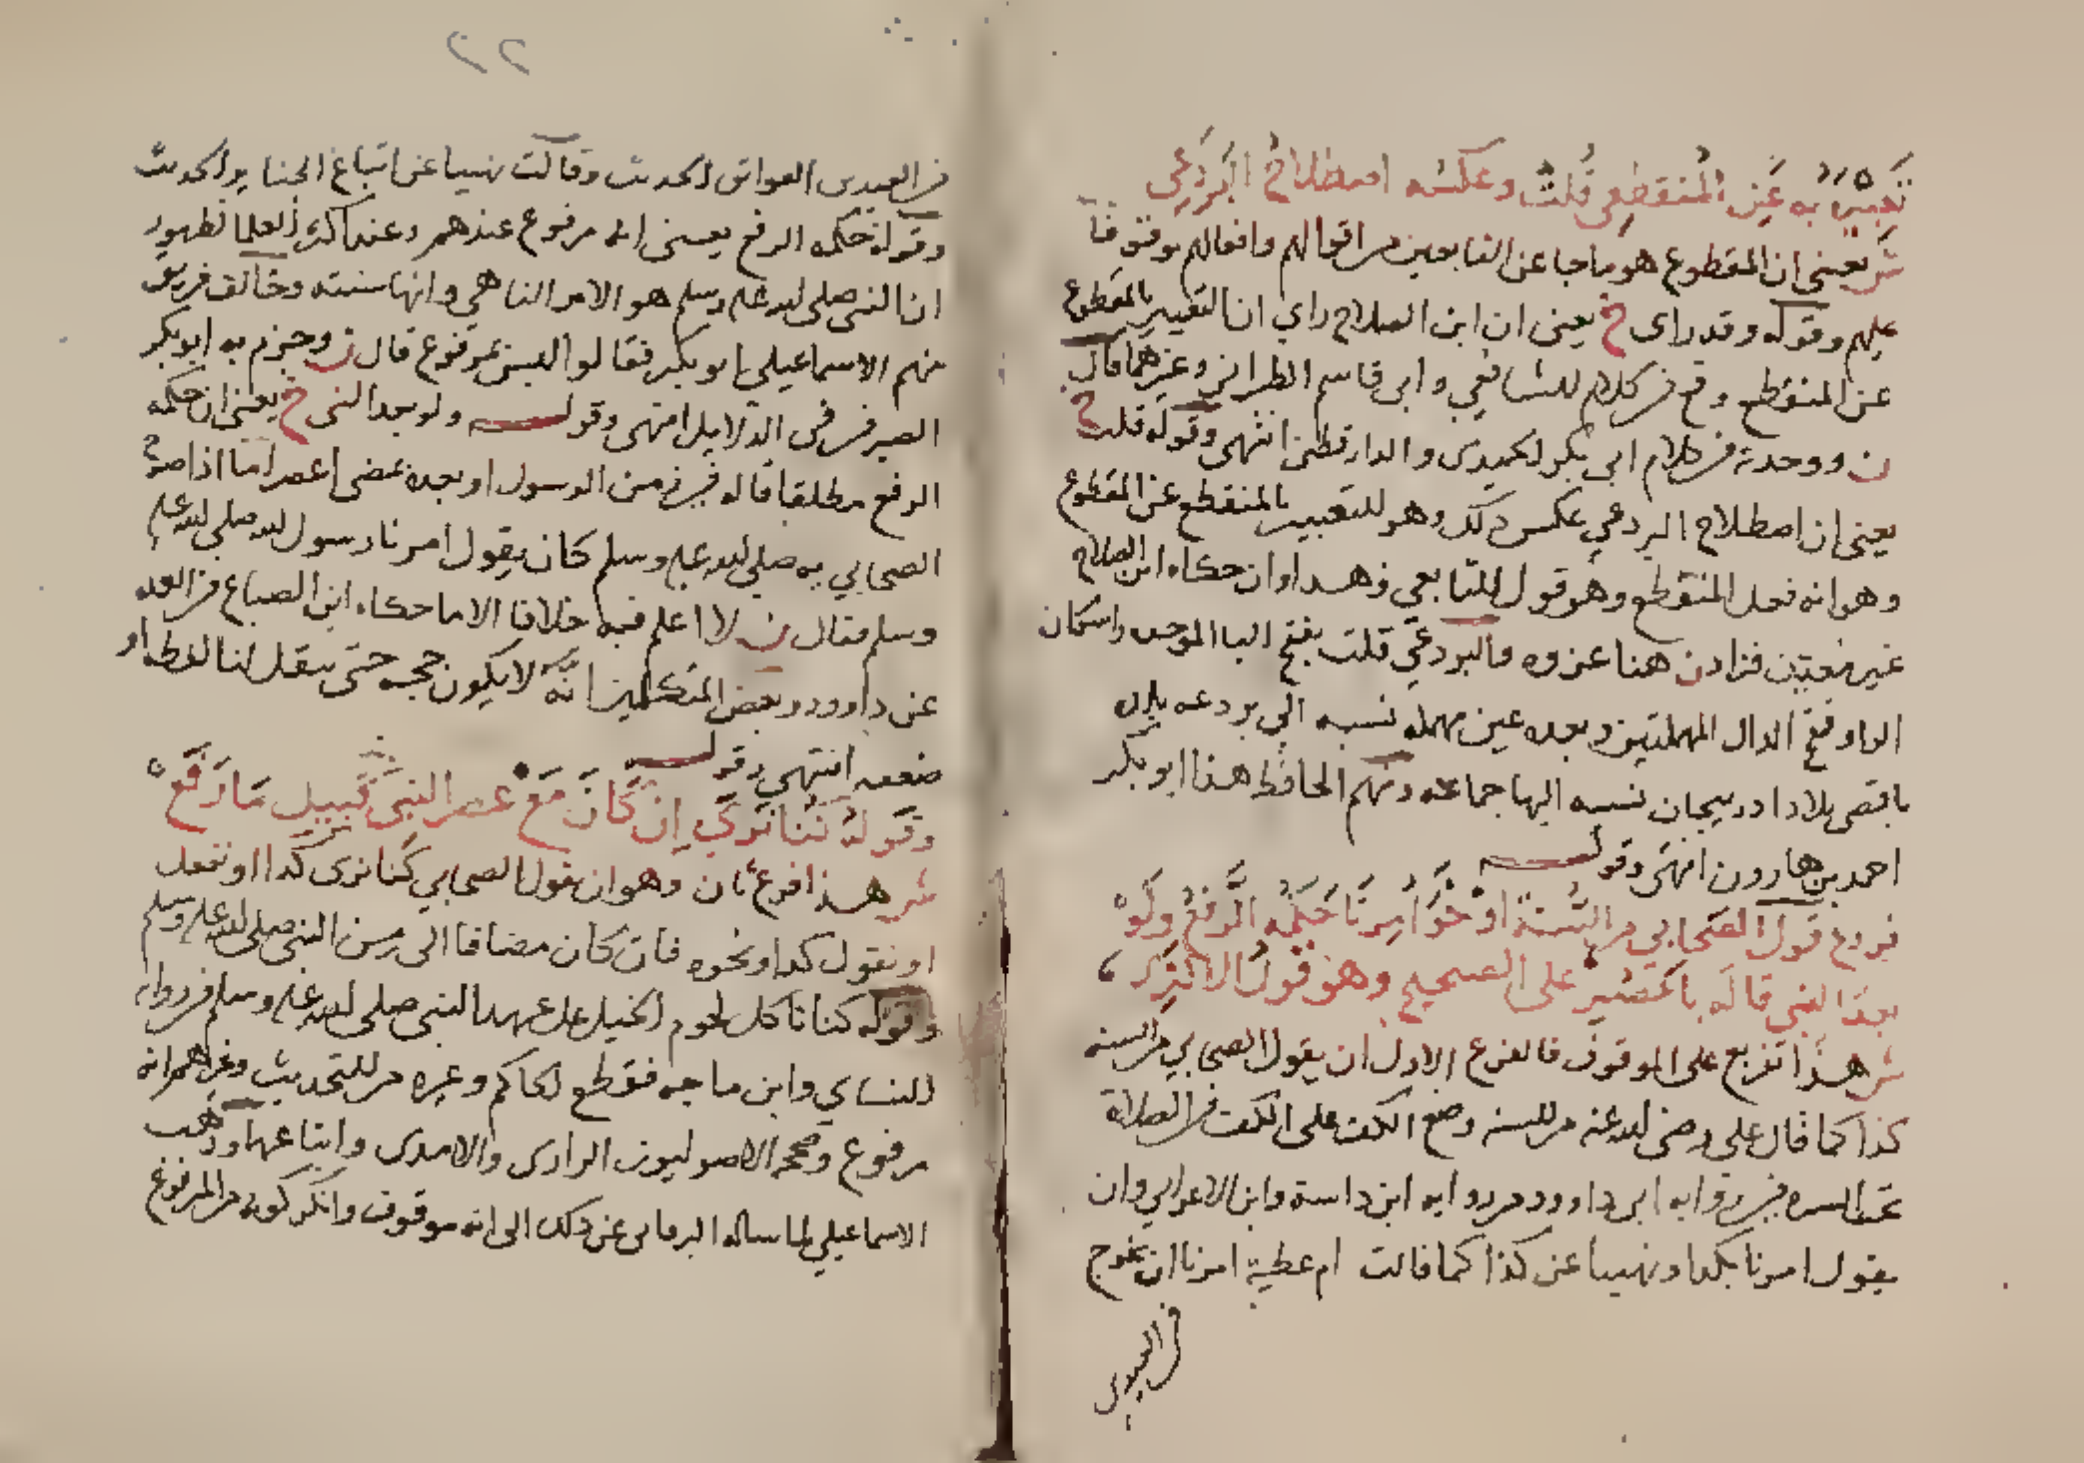 تعبيره به عن المنقطع قلت وعكسه اصطلاح البردعي
ش يعني ان المقطوع هو ماجا عن التابعين من اقوالهم وافعالهم موقوفا
عليهم وقوله وقد راى خ يعني ان ابن الصلاح راي ان التعبير بالمقطوع
عن المنقطع وقع في كلام للشافعي وابي قاسم الطبراني وغيرهما قال
ن ووجدته في كلام ابي بكر الحميدي والدارقطني انتهى وقوله قلت خ
يعني ان اصطلاح البردعي عكس ذلك وهو للتعبير بالمنقطع عن المقطوع
وهو انه فعل المنقطع وهو قول للتابعي وهذا وان حكاه ابن الصلاح
غير معين فزاد ن هنا عزوه والبردعي قلت بفتح البا الموحده واسكان
الرا وفتح الدال المهملتين وبعده عين مهمله نسبه الي بردعه بلده
باقصى بلاد ادربيجان نسبه اليها جماعه ومنهم الحافظ هذا ابو بكر
احمد بن هارون انتهى وقوله
فروع قول الصحابي من السنة او نحو امرنا حكمه الرفع ولو
بعد النبي قاله باعصر على الصحيح وهو قول الاكثر
ش هذا تفريع على الموقوف فالفرع الاول ان يقول الصحابي من السنه
كذا كما قال علي رضي الله عنه من السنه وضع الكف على الكف في الصلاة
تحت السره في رواية ابي داوود من رواية ابن داسة وابن الاعرابي وان
يقول امرنا بكدا ونهينا عن كذا كما قالت ام عطية امرنا ان نخرج
في العيدين
في العيدين العواتق الحديث وقالت نهينا عن اتباع الجنايز الحديث
وقوله حكمه الرفع يعني انه مرفوع عندهم وعند اكثر العلما لظهور
ان النبي صلى الله عليه وسلم هو الامر الناهي وانها سنته وخالف فريق
منهم الاسماعيلي ابو بكر فقالوا ليس بمرفوع قال ن وجزم به ابو بكر
الصيرفي في الدلايل انتهى وقوله ولو بعد النبي خ يعني ان حكمه
الرفع مطلقا قاله في زمن الرسول او بعده بمضي اعصر اما اذا صرح
الصحابي به صلي الله عليه وسلم كان يقول امرنا رسول الله صلى الله عليه
وسلم فقال ن لا اعلم فيه خلافا الا ما حكاه ابن الصباع في العده
عن داوود وبعض المتكلمين انه لا يكون حجه حتى ينقل لنا لفظه او
ضعفه انتهي وقوله
وقوله كنا نرى ان كان مع عصر النبي قبيل ما رفع
ش هذا فرع ثان وهو ان يقول الصحابي كنا نرى كدا او نفعل
او نقول كدا ونحوه فان كان مضافا الى زمن النبي صلى الله عليه وسلم
وقوله كنا ناكل لحوم الخيل على عهد النبي صلى الله عليه وسلم في رواية
للنساي وابن ماجه فقطع الحاكم وغيره من للتحديث وغيرهم انه
مرفوع وصححه الاصوليون الرازي والامدى واتباعهما وذهب
الاسماعيلي لما ساله البرقاني عن ذلك الى انه موقوف وانكر كونه من المرفوع